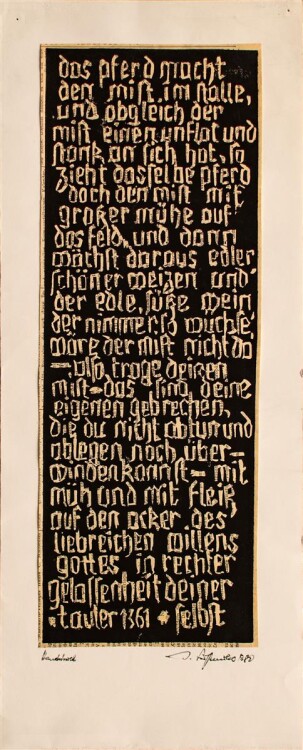 das pferd macht
den mist im stalle,
und obgleich der
mist einen unflat und
stank an sich hat, so
zieht dasselbe pferd
doch den mist mit
großer mühe auf
das feld, und dann
wächst daraus edler
schöner weizen und
der edle, süße wein
der nimmer so wüchse
wäre der mist nicht da
– also, trage deinen
mist – das sind deine
eigenen gebrechen,
die du nicht abtun und
ablegen noch über–
winden kannst – mit
müh und mit fleiß
auf den acker des
liebreichen willens
gottes in rechter
gelassenheit deiner
tauler 1361 * selbst
Handdruck